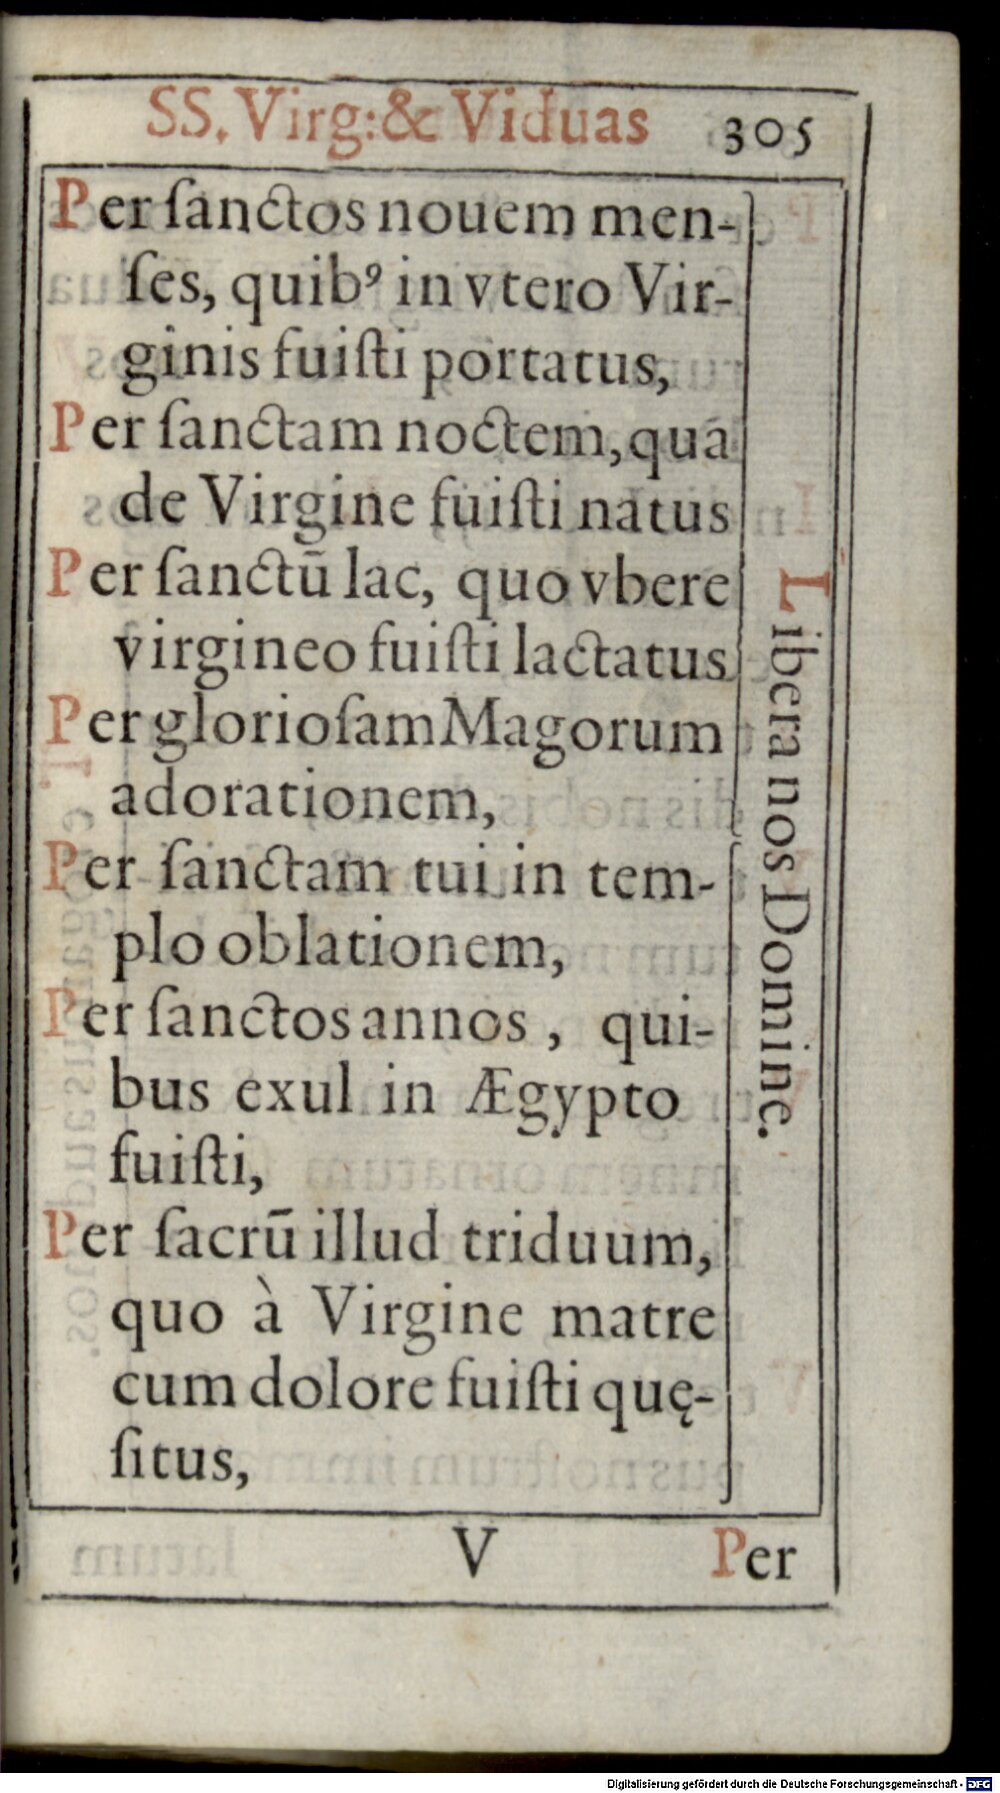 SS. Virg:& Viduas 305
Per ſanctos nouem men-
ſes, quibꝰ in vtero Vir-
ginis fuiſti portatus,
Per ſanctam noctem, qua
de Virgine fuiſti natus
Per ſanctū lac, quo vbere
virgineo fuiſti lactatus
Per glorioſam Magorum
adorationem,
Per ſanctam tui in tem-
plo oblationem,
Per ſanctos annos , qui-
bus exul in Ægypto
fuiſti,
Per ſacrū illud triduum,
quo à Virgine matre
cum dolore fuiſti quę-
ſitus,
Libera nos Domine.
V Per
Digitalisierung gefördert durch die Deutsche Forschungsgemeinschaft - DFG